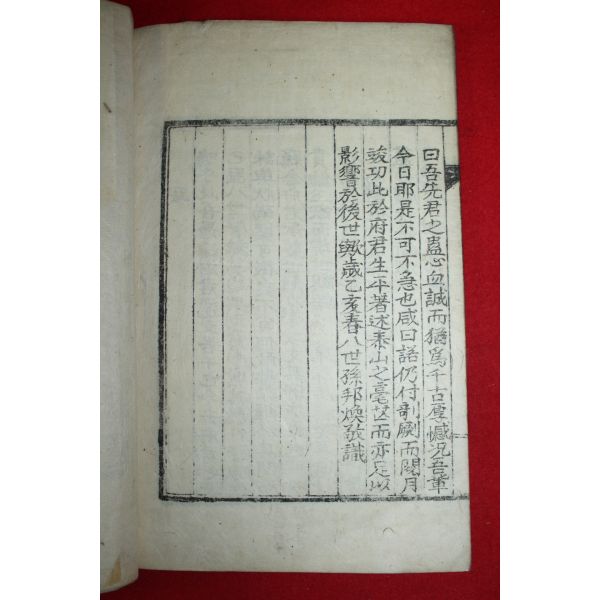 曰吾先君之蠱心血誠而猶爲千古厚憾況吾輩
今日耶是不可不急也咸曰諾仍付剞劂而閱月
竣功此於府君生平著述泰山之毫芒而亦足以
影響於後世歟歲乙亥春八世孫邦煥敬識